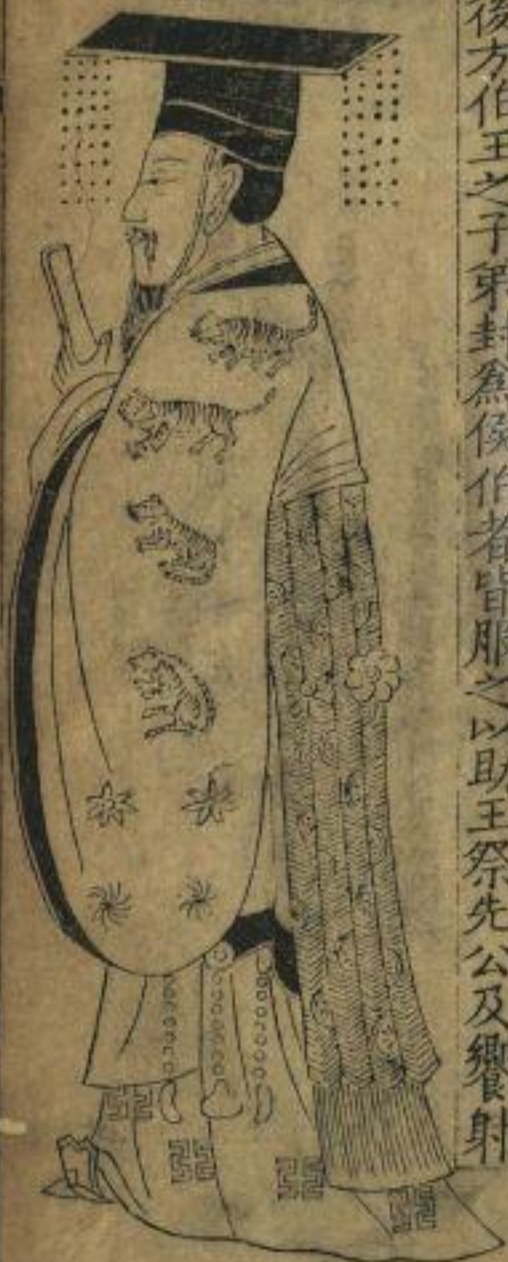 後方伯王之子弟封為侯伯者皆服之以助王祭先公及饗射